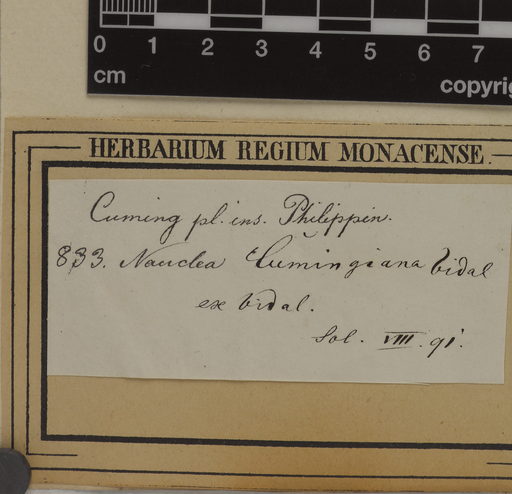 0 1 2 3 4 5 6 7
cm
copyrig
HERBARIUM REGIUM MONACENSE.
Cuming pl. ins. Philippin.
833. Nauclea Cumingiana Vidal
ex Vidal.
Sol. VIII. 91.